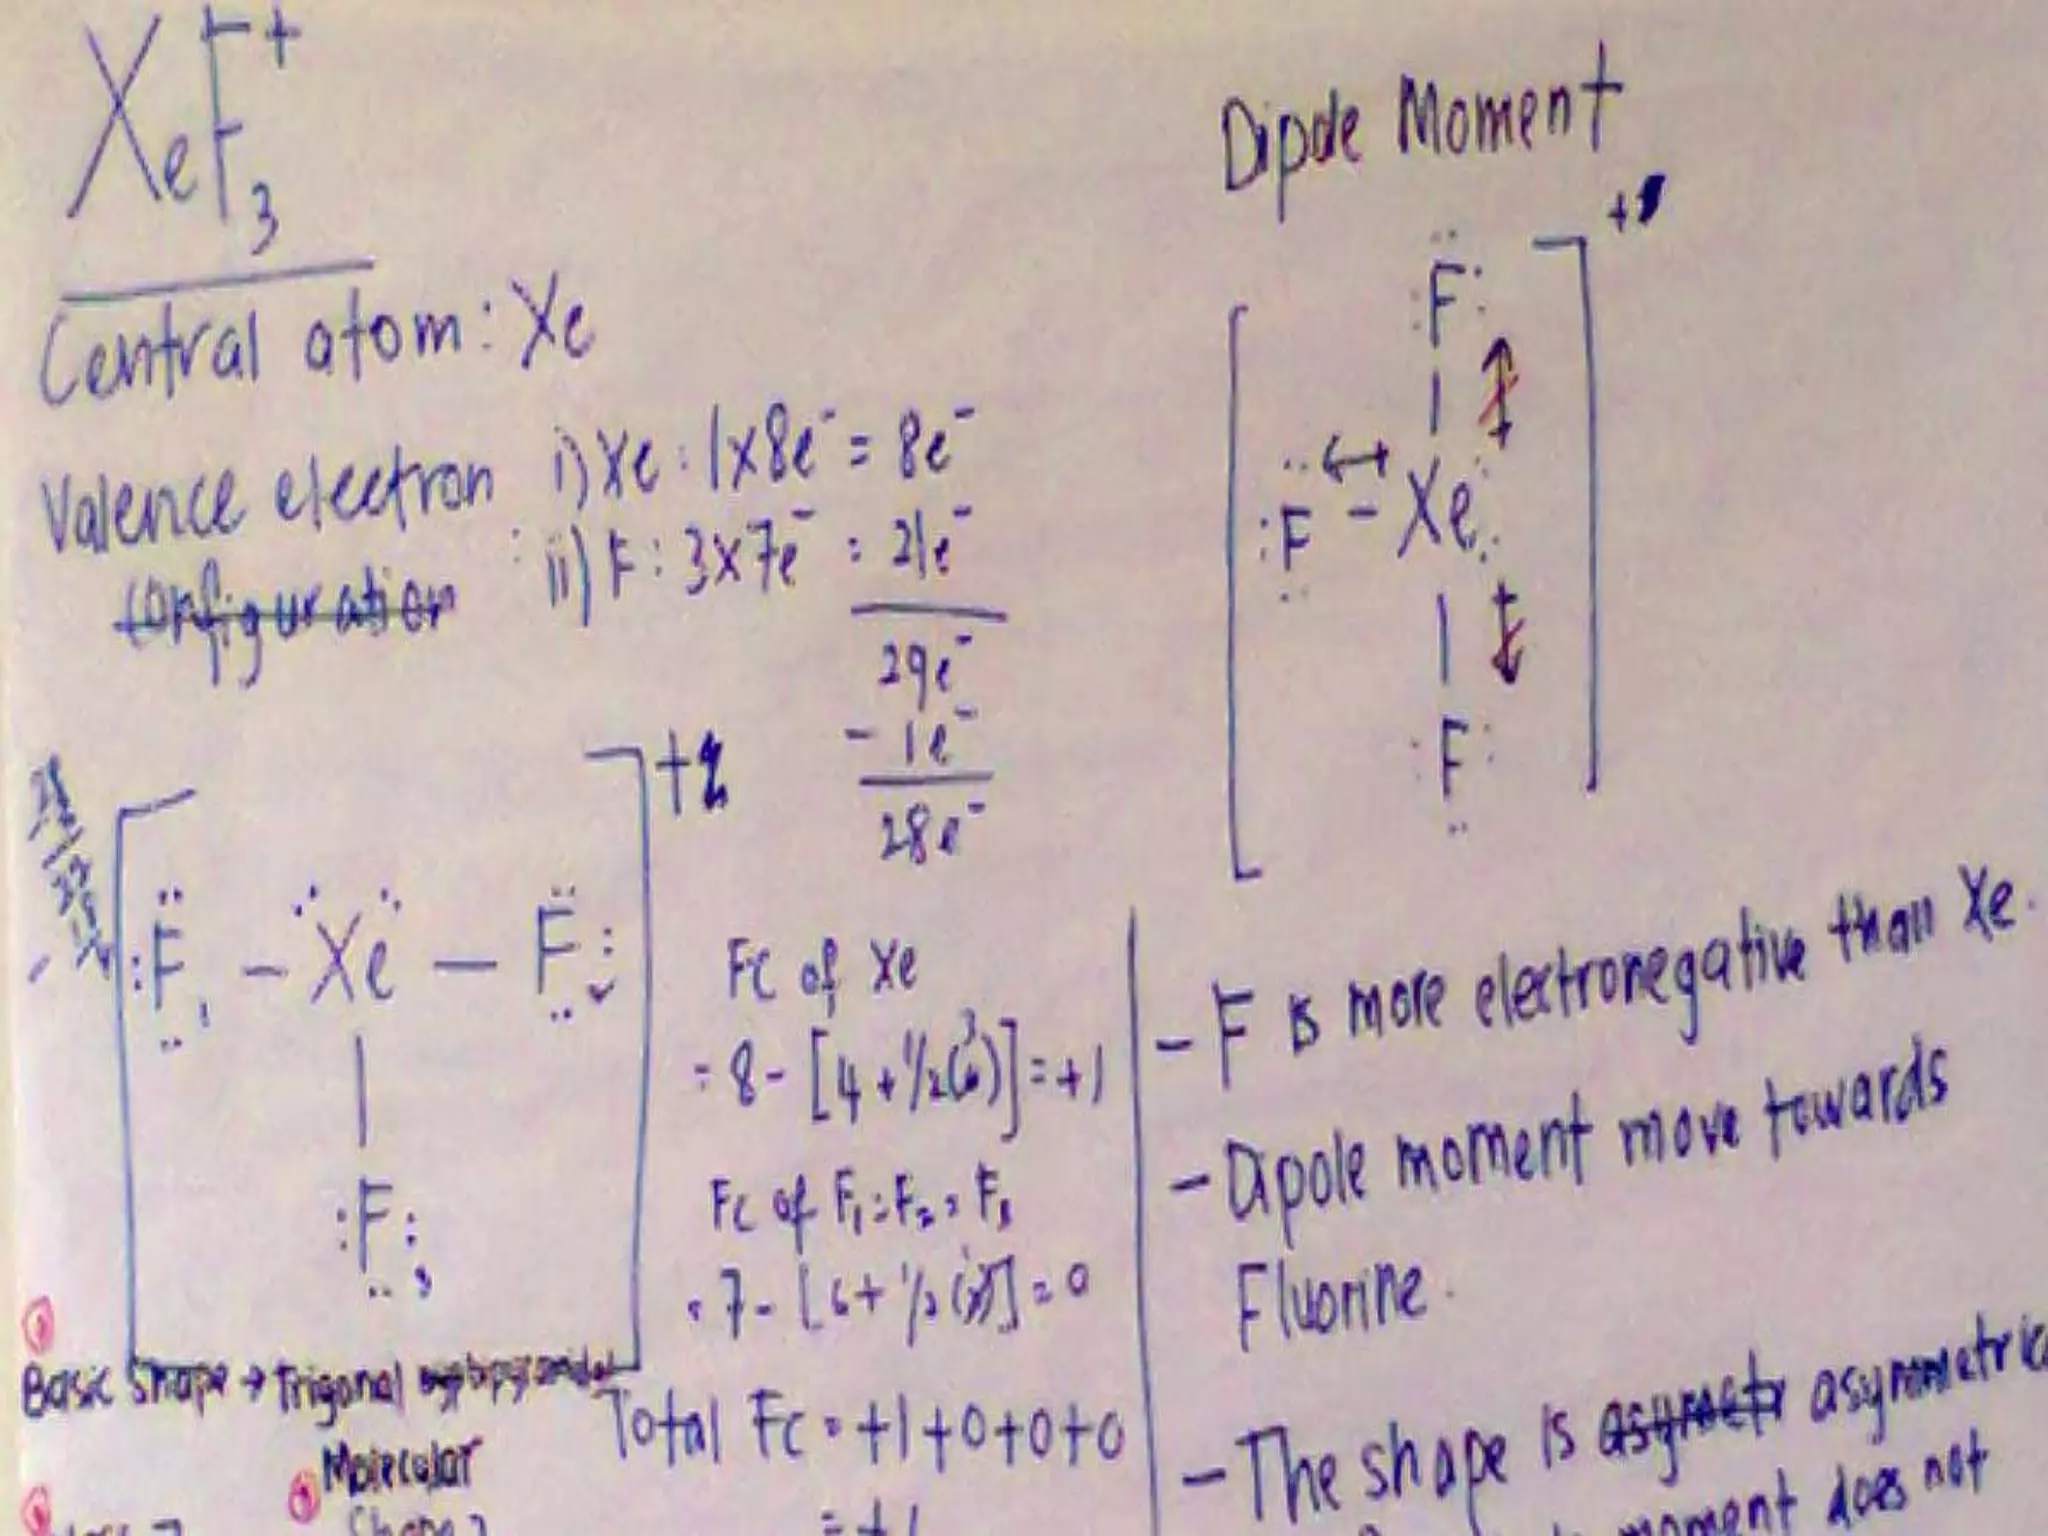 XeF₃⁺
Central atom: Xe
Valence electron : i) Xe : 1x8e⁻ = 8e⁻
configuration ii) F : 3x7e⁻ = 21e⁻
29e⁻
- 1e⁻
28e⁻
:F - Xe - F:
|
:F:
FC of Xe
= 8 - [4 + 1/2(6)] = +1
FC of F₁ = F₂ = F₃
= 7 - [6 + 1/2(2)] = 0
Total FC = +1+0+0+0
= +1
Basic shape → Trigonal bipyramidal
Molecular
Shape
Dipole Moment
+
:F:
|
:F - Xe
|
:F:
- F is more electronegative than Xe.
- Dipole moment move towards
Fluorine.
- The shape is asymmetric
moment does not